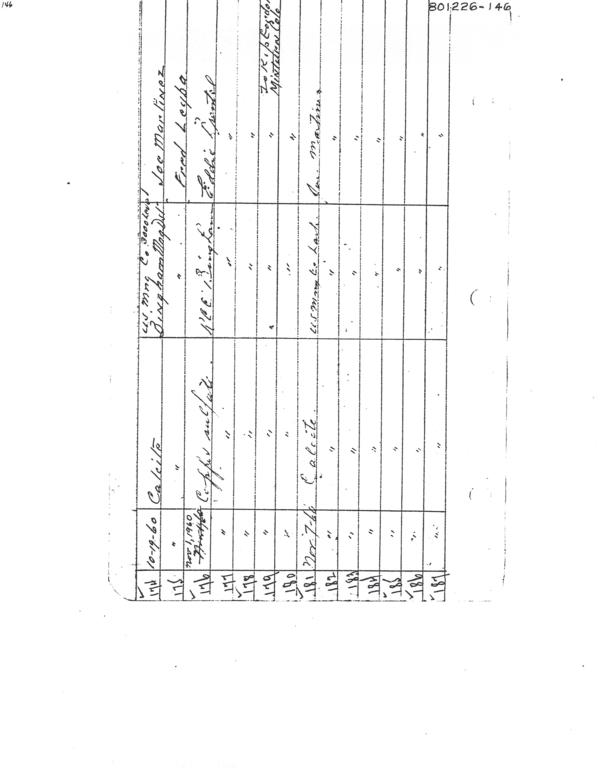 146
801226-146
174 10-19-60 Calcite U.S. Mng Co. 3000 level Bingham Joe Martinez
175 " " " Fred Leyba
176 Nov 1, 1960 Copper sulfate Bingham Eddie
177 " " " "
178 " " " "
179 " " " " Minturn Colo
180 " " " "
181 Nov 7-60 Calcite U.S. Mng Co Lark Joe Martinez
182 " " " "
183 " " " "
184 " " " "
185 " " " "
186 " " " "
187 " " " "